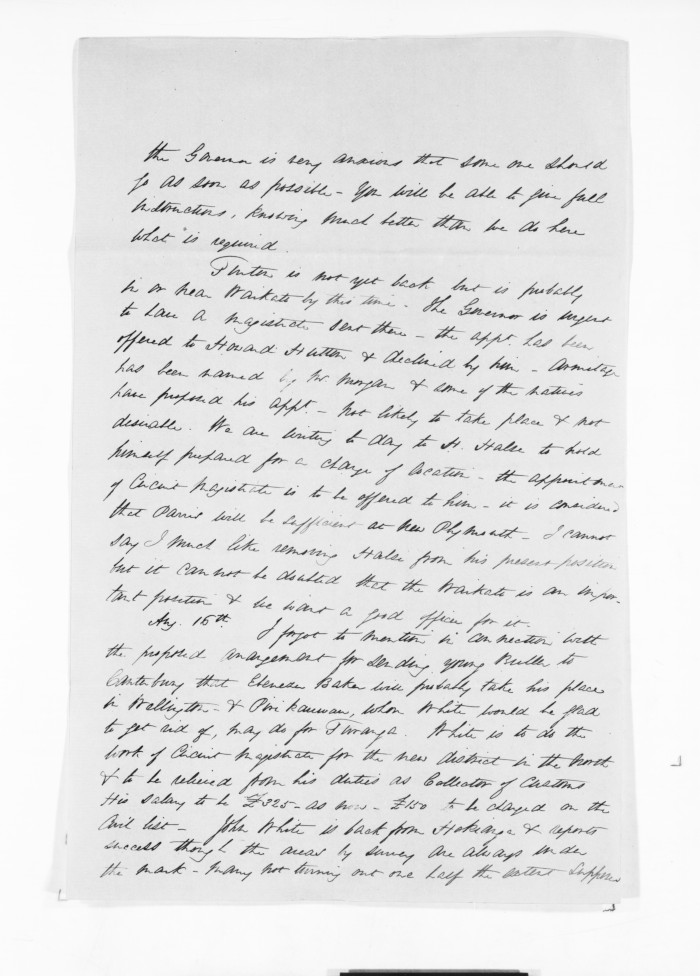 the Governor is very anxious that some one should
go as soon as possible - You will be able to give full
instructions, knowing much better than we do here
what is required.
Fenton is not yet back but is probably
in or near Waikato by this time - The Governor is urgent
to have a magistrate sent there - the appt. has been
offered to Howard Hutton & declined by him - Armitage
has been named by Mr. Morgan & some of the natives
have proposed his appt. - not likely to take place & not
desirable. We are writing to day to H. Halse to hold
himself prepared for a change of location - the appointment
of Circuit Magistrate is to be offered to him - it is considered
that Parris will be sufficient at New Plymouth - I cannot
say I much like removing Halse from his present position
but it can not be doubted that the Waikato is an impor-
tant position & we want a good officer for it.
Aug. 16th. I forgot to mention in connection with
the proposed arrangement for sending young Buller to
Canterbury that Ebenezer Baker will probably take his place
in Wellington - & whom White would be glad
to get rid of, may do for Turanga. White is to do the
work of Circuit Magistrate for the new district in the North
& to be relieved from his duties as Collector of Customs
His salary to be £325 - as now - £150 to be charged on the
Civil list - John White is back from Hokianga & reports
success though the areas by survey are always under
the mark - many not turning out one half the extent suppose